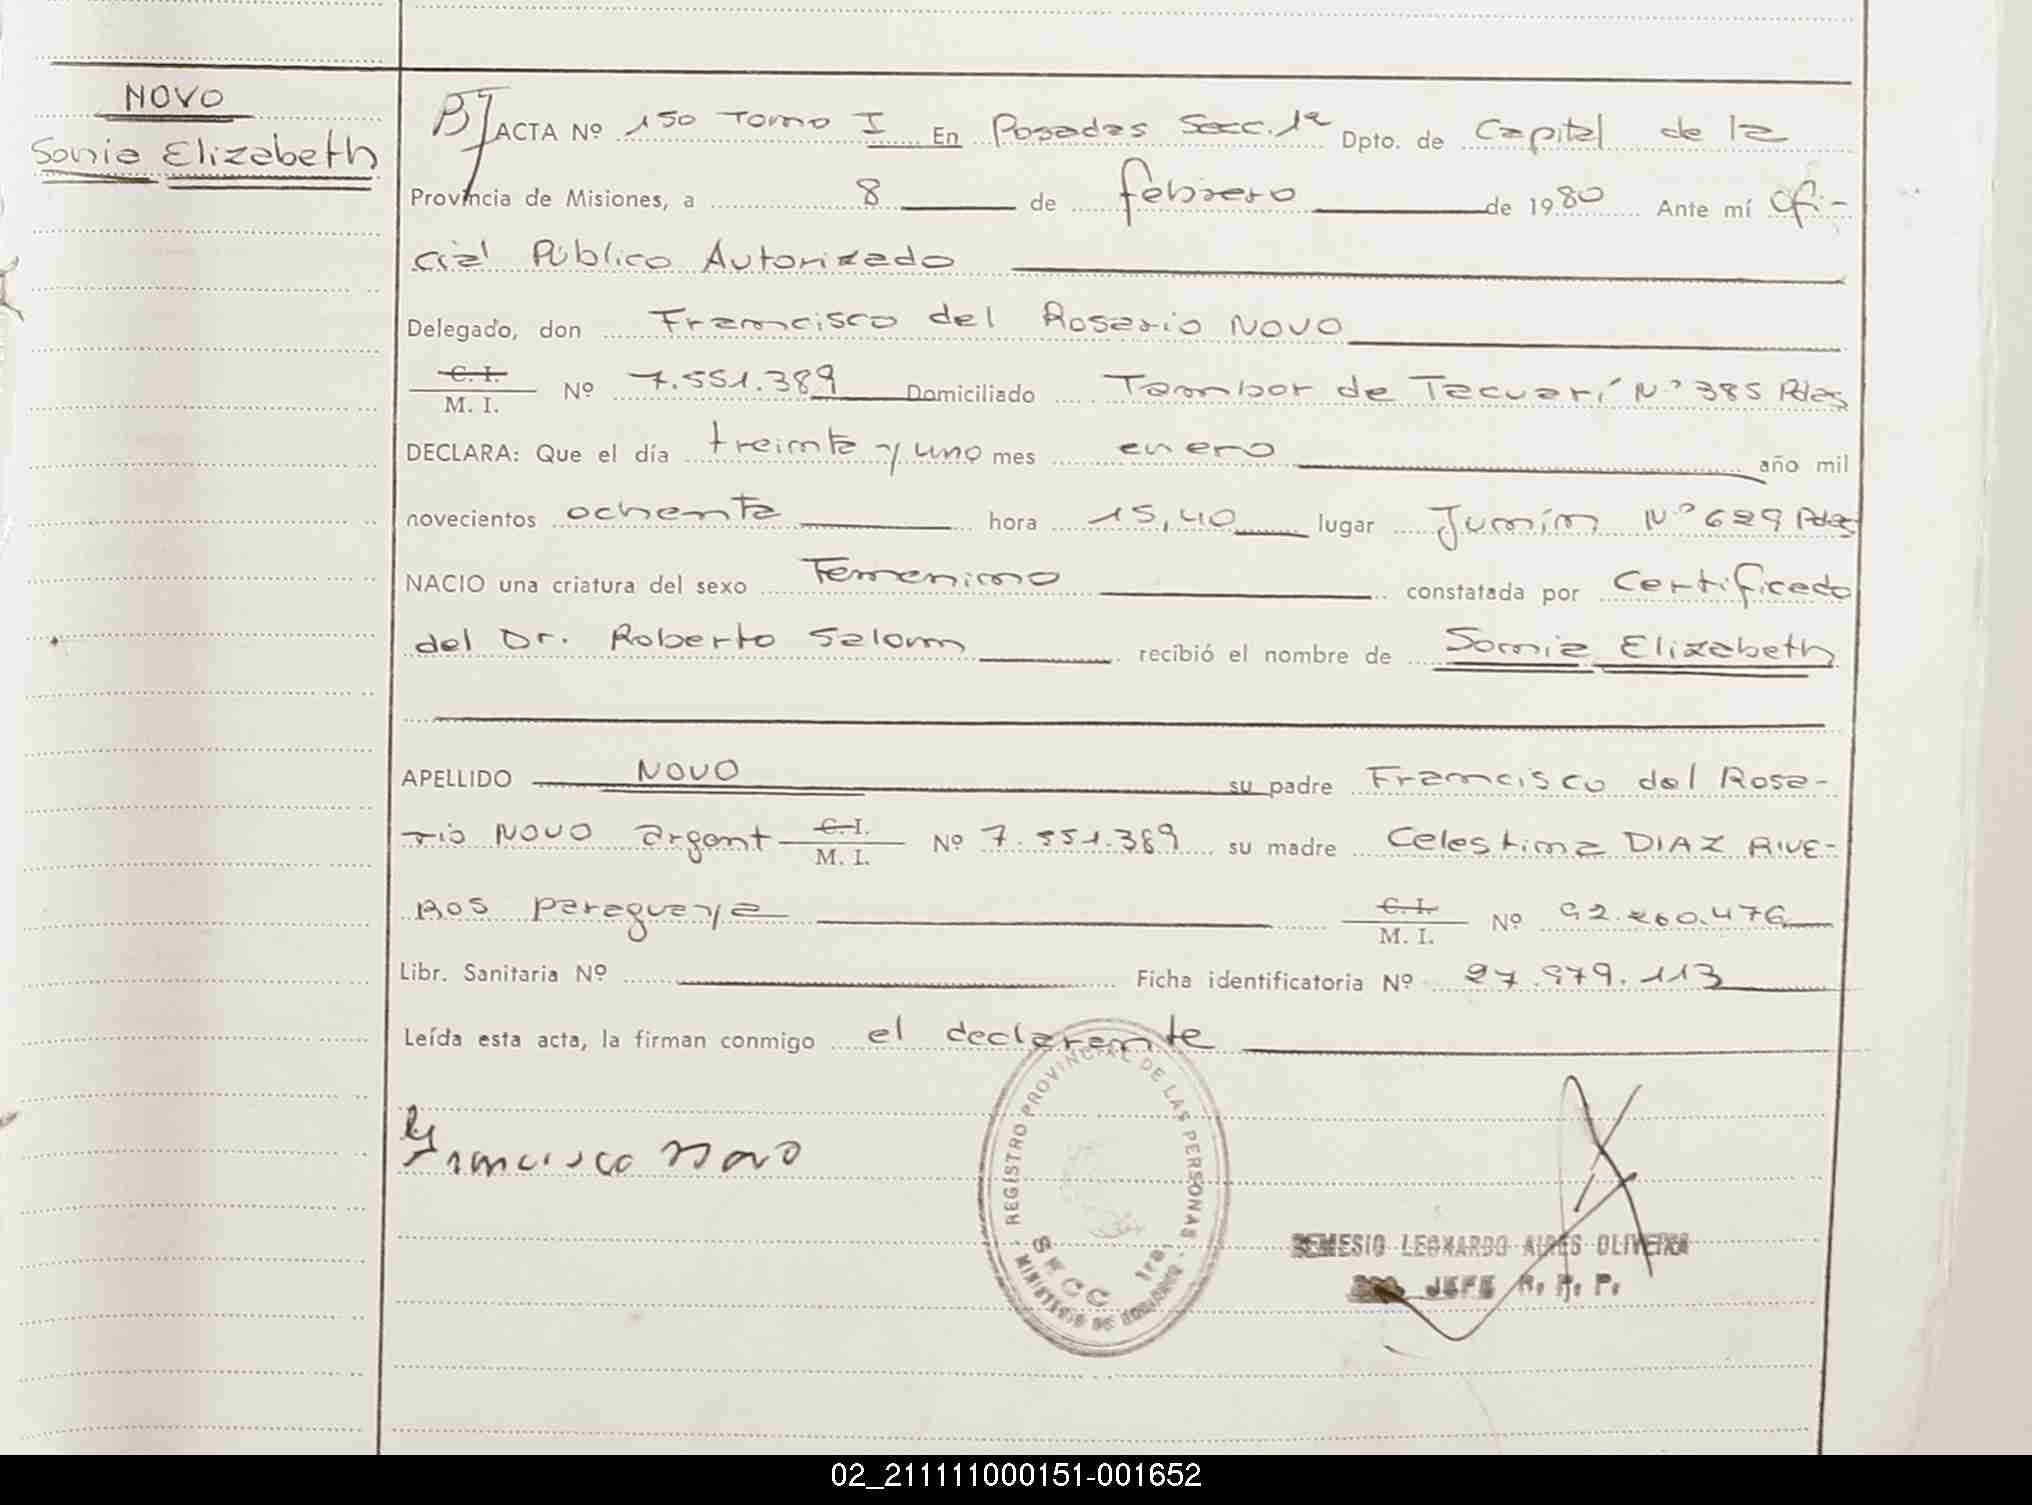 NOVO
Sonia Elizabeth
BJ ACTA Nº 150 Tomo I En Posadas Secc. 1ª Dpto. de Capital de la
Provincia de Misiones, a 8 de febrero de 1980 Ante mí Ofi-
cial Público Autorizado
Delegado, don Francisco del Rosario NOVO
C. I.
M. I. Nº 7.551.389 Domiciliado Tambor de Tacuarí Nº 385 Pdas
DECLARA: Que el día treinta y uno mes enero año mil
novecientos ochenta hora 15,40 lugar Junín Nº 629 Pdas
NACIO una criatura del sexo Femenino constatada por Certificado
del Dr. Roberto Salom recibió el nombre de Sonia Elizabeth
APELLIDO NOVO su padre Francisco del Rosa-
rio NOVO argent C. I.
M. I. Nº 7.551.389 su madre Celestina DIAZ RIVE-
ROS paraguaya C. I.
M. I. Nº 92.260.476
Libr. Sanitaria Nº Ficha identificatoria Nº 27.979.113
Leída esta acta, la firman conmigo el declarante
Francisco Novo
REGISTRO PROVINCIAL DE LAS PERSONAS
SECC 1ra.
MINISTERIO DE GOBIERNO
LEONARDO AIRES OLIVEIRA
JEFE R. R. P.
02_211111000151-001652